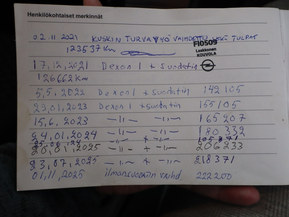 Henkilökohtaiset merkinnät
02.11 2021 KUSKIN TURVAVYÖ VAIHDETTU
123537 Km
FIO509
Laakkonen
KOUVOLA
17,12,2021 Dexos 1 + suodatin
126662 Km
5,5,2022 Dexos 1 + suodatin 142105
23,01,2023 Dexos 1 + suodatin 155105
15,6,2023 -11- -11- 165207
24,01,2024 -11- + -11- 180332
28,8,2025 -11- + -11- 206233
23,07,2025 -11- + -11- 218371
01,11,2025 ilmansuodatin vaihd. 222200